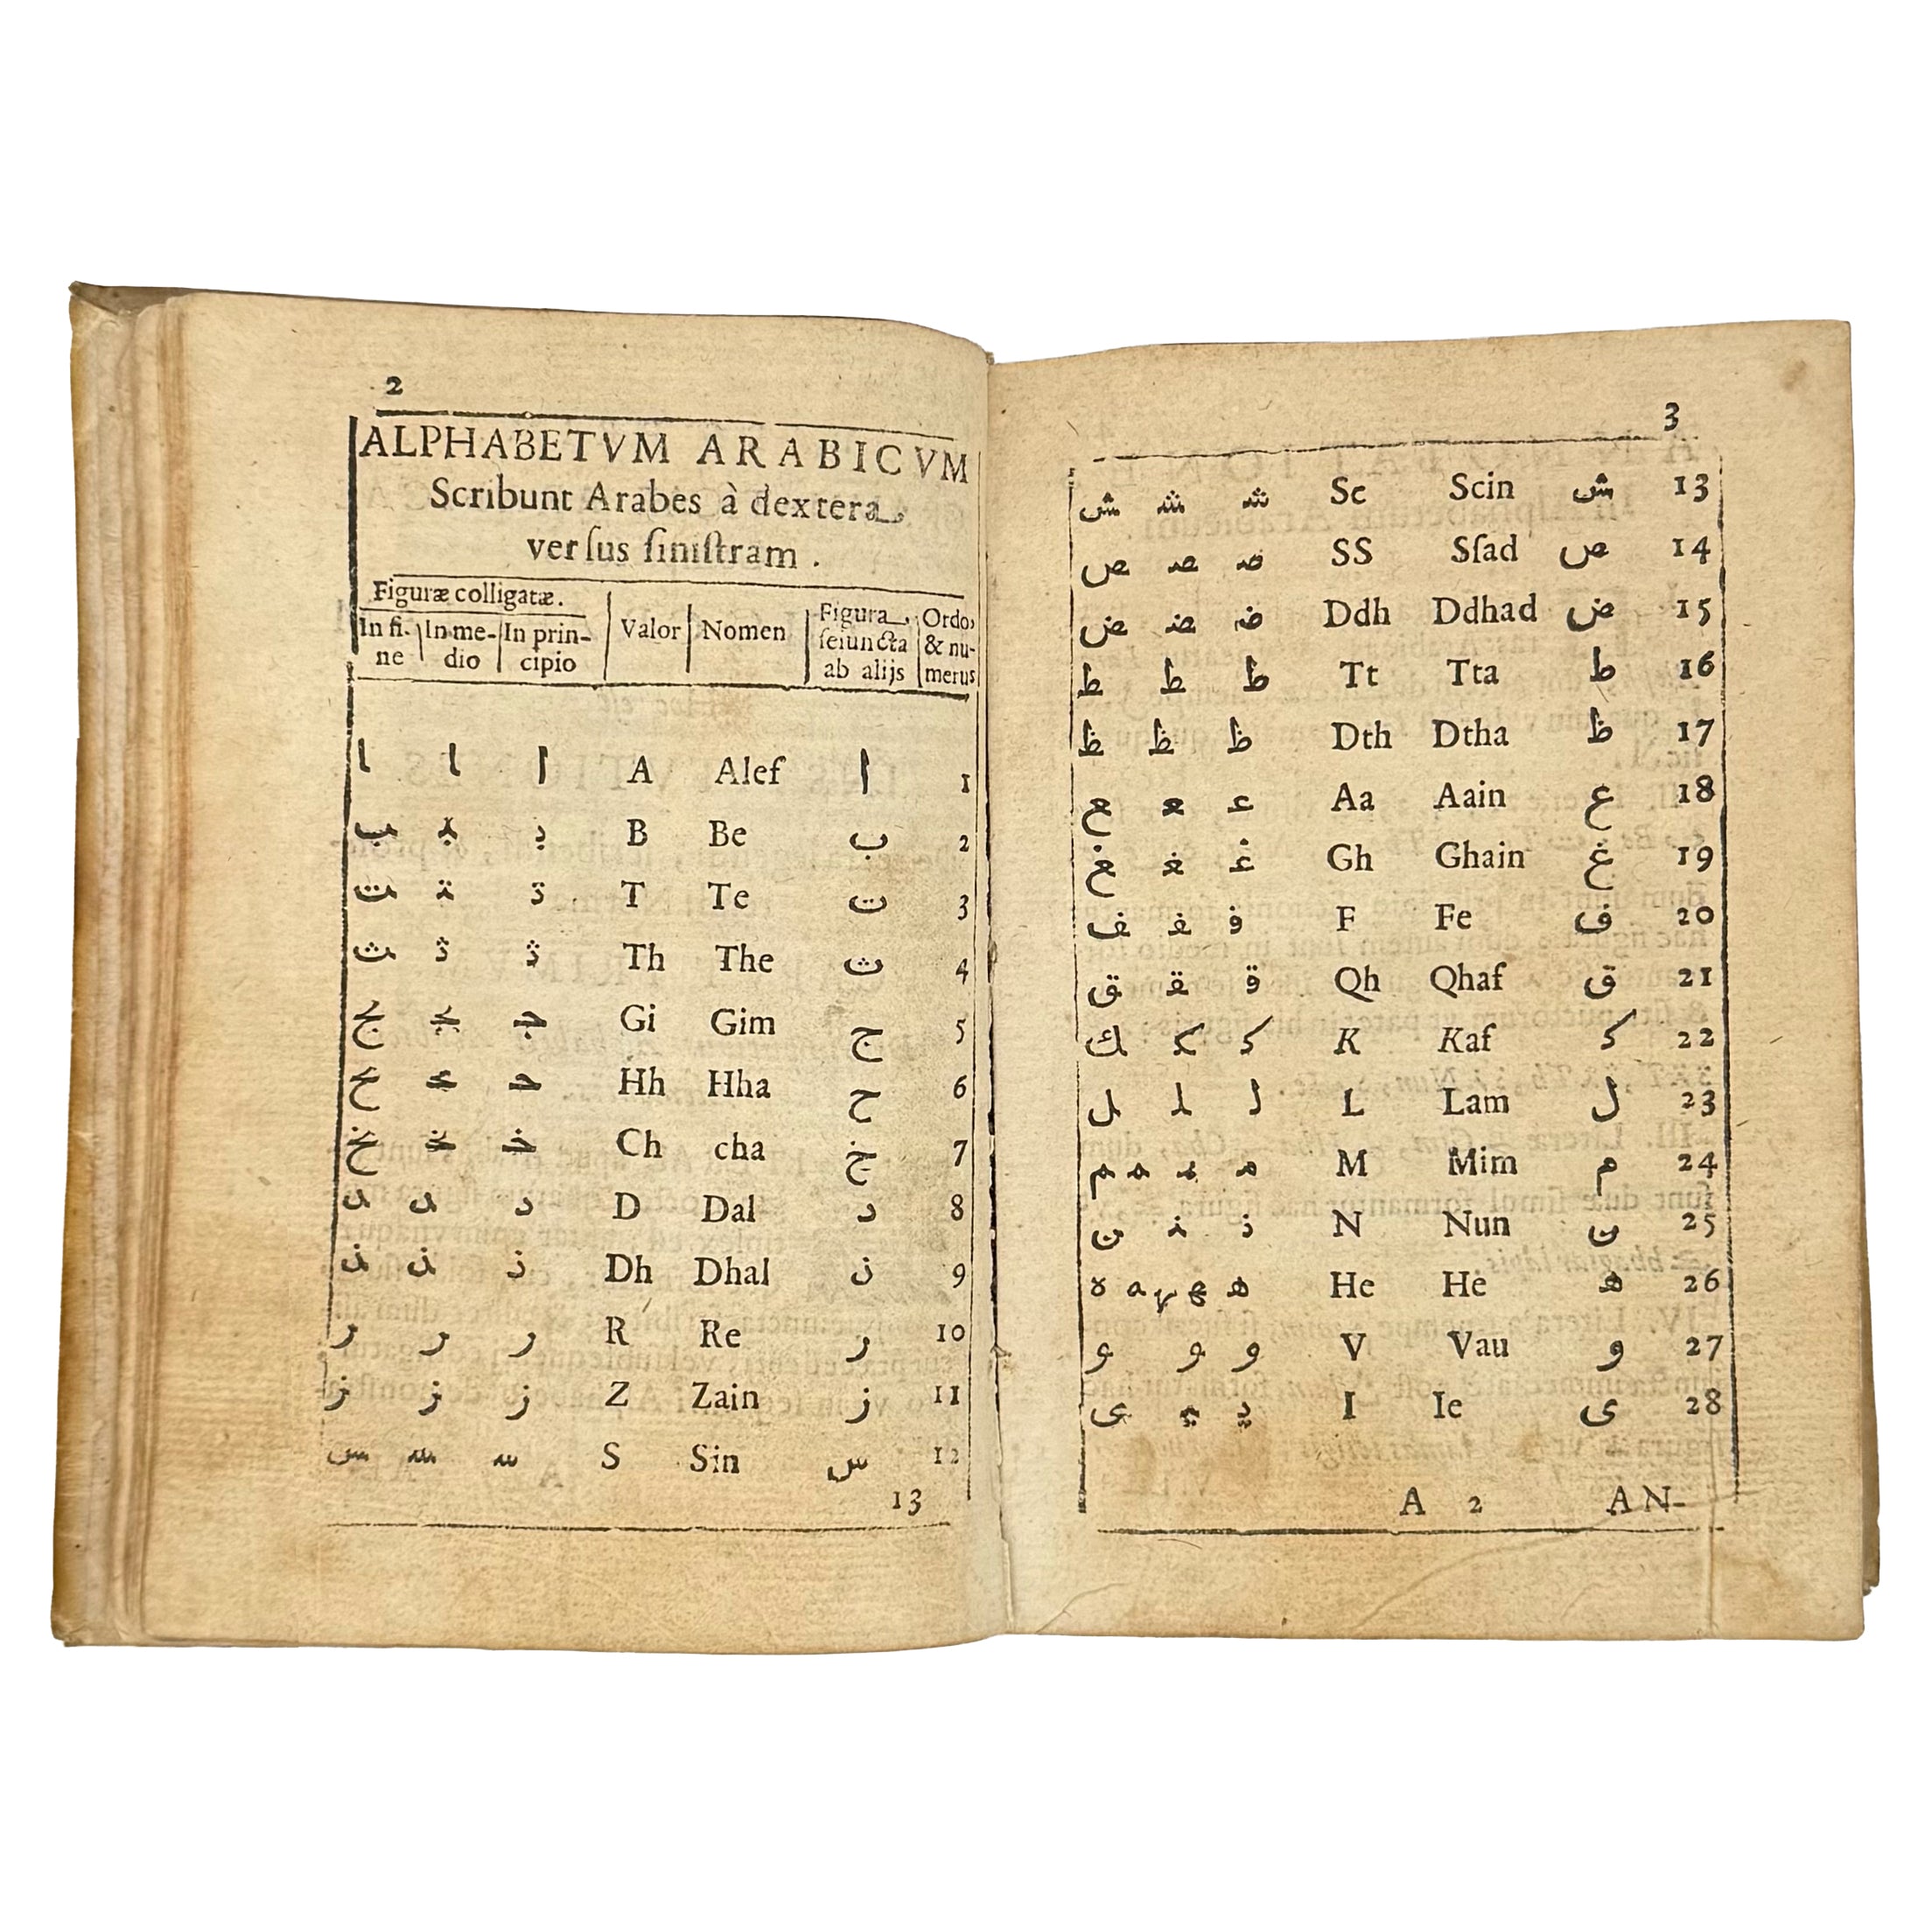 2
ALPHABETVM ARABICVM
Scribunt Arabes à dextera
versus siniſtram .
Figuræ colligatæ.
In fine | In medio | In principio | Valor | Nomen | Figura ſeiuncta ab alijs | Ordo, & numerus
ا ا ا A Alef ا 1
ـب ـبـ بـ B Be ب 2
ـت ـتـ تـ T Te ت 3
ـث ـثـ ثـ Th The ث 4
ـج ـجـ جـ Gi Gim ج 5
ـح ـحـ حـ Hh Hha ح 6
ـخ ـخـ خـ Ch cha خ 7
ـد ـد د D Dal د 8
ـذ ـذ ذ Dh Dhal ذ 9
ر ر ر R Re ر 10
ز ز ز Z Zain ز 11
ـس ـسـ سـ S Sin س 12
13
3
ـش ـشـ شـ Sc Scin ش 13
ـص ـصـ صـ SS Sſad ص 14
ـض ـضـ ضـ Ddh Ddhad ض 15
ط ط ط Tt Tta ط 16
ظ ظ ظ Dth Dtha ظ 17
ـع ـعـ عـ Aa Aain ع 18
ـغ ـغـ غـ Gh Ghain غ 19
ـف ـفـ فـ F Fe ف 20
ـق ـقـ قـ Qh Qhaf ق 21
ـك ـكـ كـ K Kaf ك 22
ـل ـلـ لـ L Lam ل 23
ـم ـم ـمـ مـ M Mim م 24
ـن ـنـ نـ N Nun ن 25
ه ـه ـهـ ـهـ هـ He He ه 26
و و و V Vau و 27
ـى ـيـ يـ I Ie ى 28
A 2 AN-